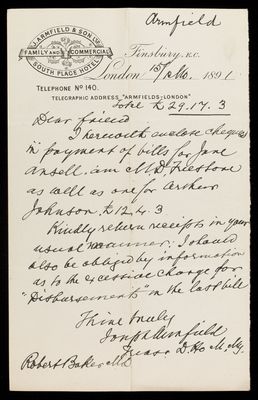 Armfield
J. ARMFIELD & SON LTD
FAMILY AND COMMERCIAL
SOUTH PLACE HOTEL
Finsbury, E.C.
London 15/ Mo. 1891
TELEPHONE No 140.
TELEGRAPHIC ADDRESS, "ARMFIELDS-LONDON"
Total £ 29.17.3
Dear friend
I herewith enclose cheques
in payment of bills for Jane
Ansell. and M D. Freestone
as well as one for Arthur
Johnson. £ 12.4.3
Kindly return receipts in your
usual manner: I should
also be obliged by information
as to the excessive charge for
"Disbursements" in the last bill
Thine truly
Joseph Armfield
Robert Baker M.D.